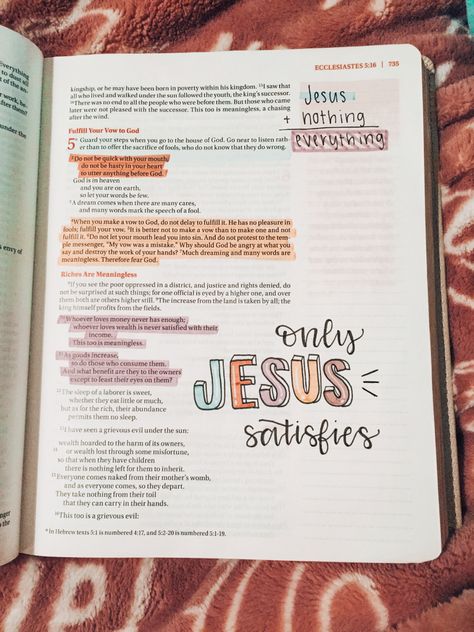 ECCLESIASTES 5:16 | 735
kingship, or he may have been born in poverty within his kingdom. 15I saw that
all who lived and walked under the sun followed the youth, the king's successor.
16There was no end to all the people who were before them. But those who came
later were not pleased with the successor. This too is meaningless, a chasing
after the wind.
Fulfill Your Vow to God
5a Guard your steps when you go to the house of God. Go near to listen rath-
er than to offer the sacrifice of fools, who do not know that they do wrong.
2Do not be quick with your mouth,
do not be hasty in your heart
to utter anything before God.
God is in heaven
and you are on earth,
so let your words be few.
3A dream comes when there are many cares,
and many words mark the speech of a fool.
4When you make a vow to God, do not delay to fulfill it. He has no pleasure in
fools; fulfill your vow. 5It is better not to make a vow than to make one and not
fulfill it. 6Do not let your mouth lead you into sin. And do not protest to the tem-
ple messenger, "My vow was a mistake." Why should God be angry at what you
say and destroy the work of your hands? 7Much dreaming and many words are
meaningless. Therefore fear God.
Riches Are Meaningless
8If you see the poor oppressed in a district, and justice and rights denied, do
not be surprised at such things; for one official is eyed by a higher one, and over
them both are others higher still. 9The increase from the land is taken by all; the
king himself profits from the fields.
10Whoever loves money never has enough;
whoever loves wealth is never satisfied with their
income.
This too is meaningless.
11As goods increase,
so do those who consume them.
And what benefit are they to the owners
except to feast their eyes on them?
12The sleep of a laborer is sweet,
whether they eat little or much,
but as for the rich, their abundance
permits them no sleep.
13I have seen a grievous evil under the sun:
wealth hoarded to the harm of its owners,
14 or wealth lost through some misfortune,
so that when they have children
there is nothing left for them to inherit.
15Everyone comes naked from their mother's womb,
and as everyone comes, so they depart.
They take nothing from their toil
that they can carry in their hands.
16This too is a grievous evil:
a In Hebrew texts 5:1 is numbered 4:17, and 5:2-20 is numbered 5:1-19.
Jesus
+ nothing
everything
only
JESUS
satisfies